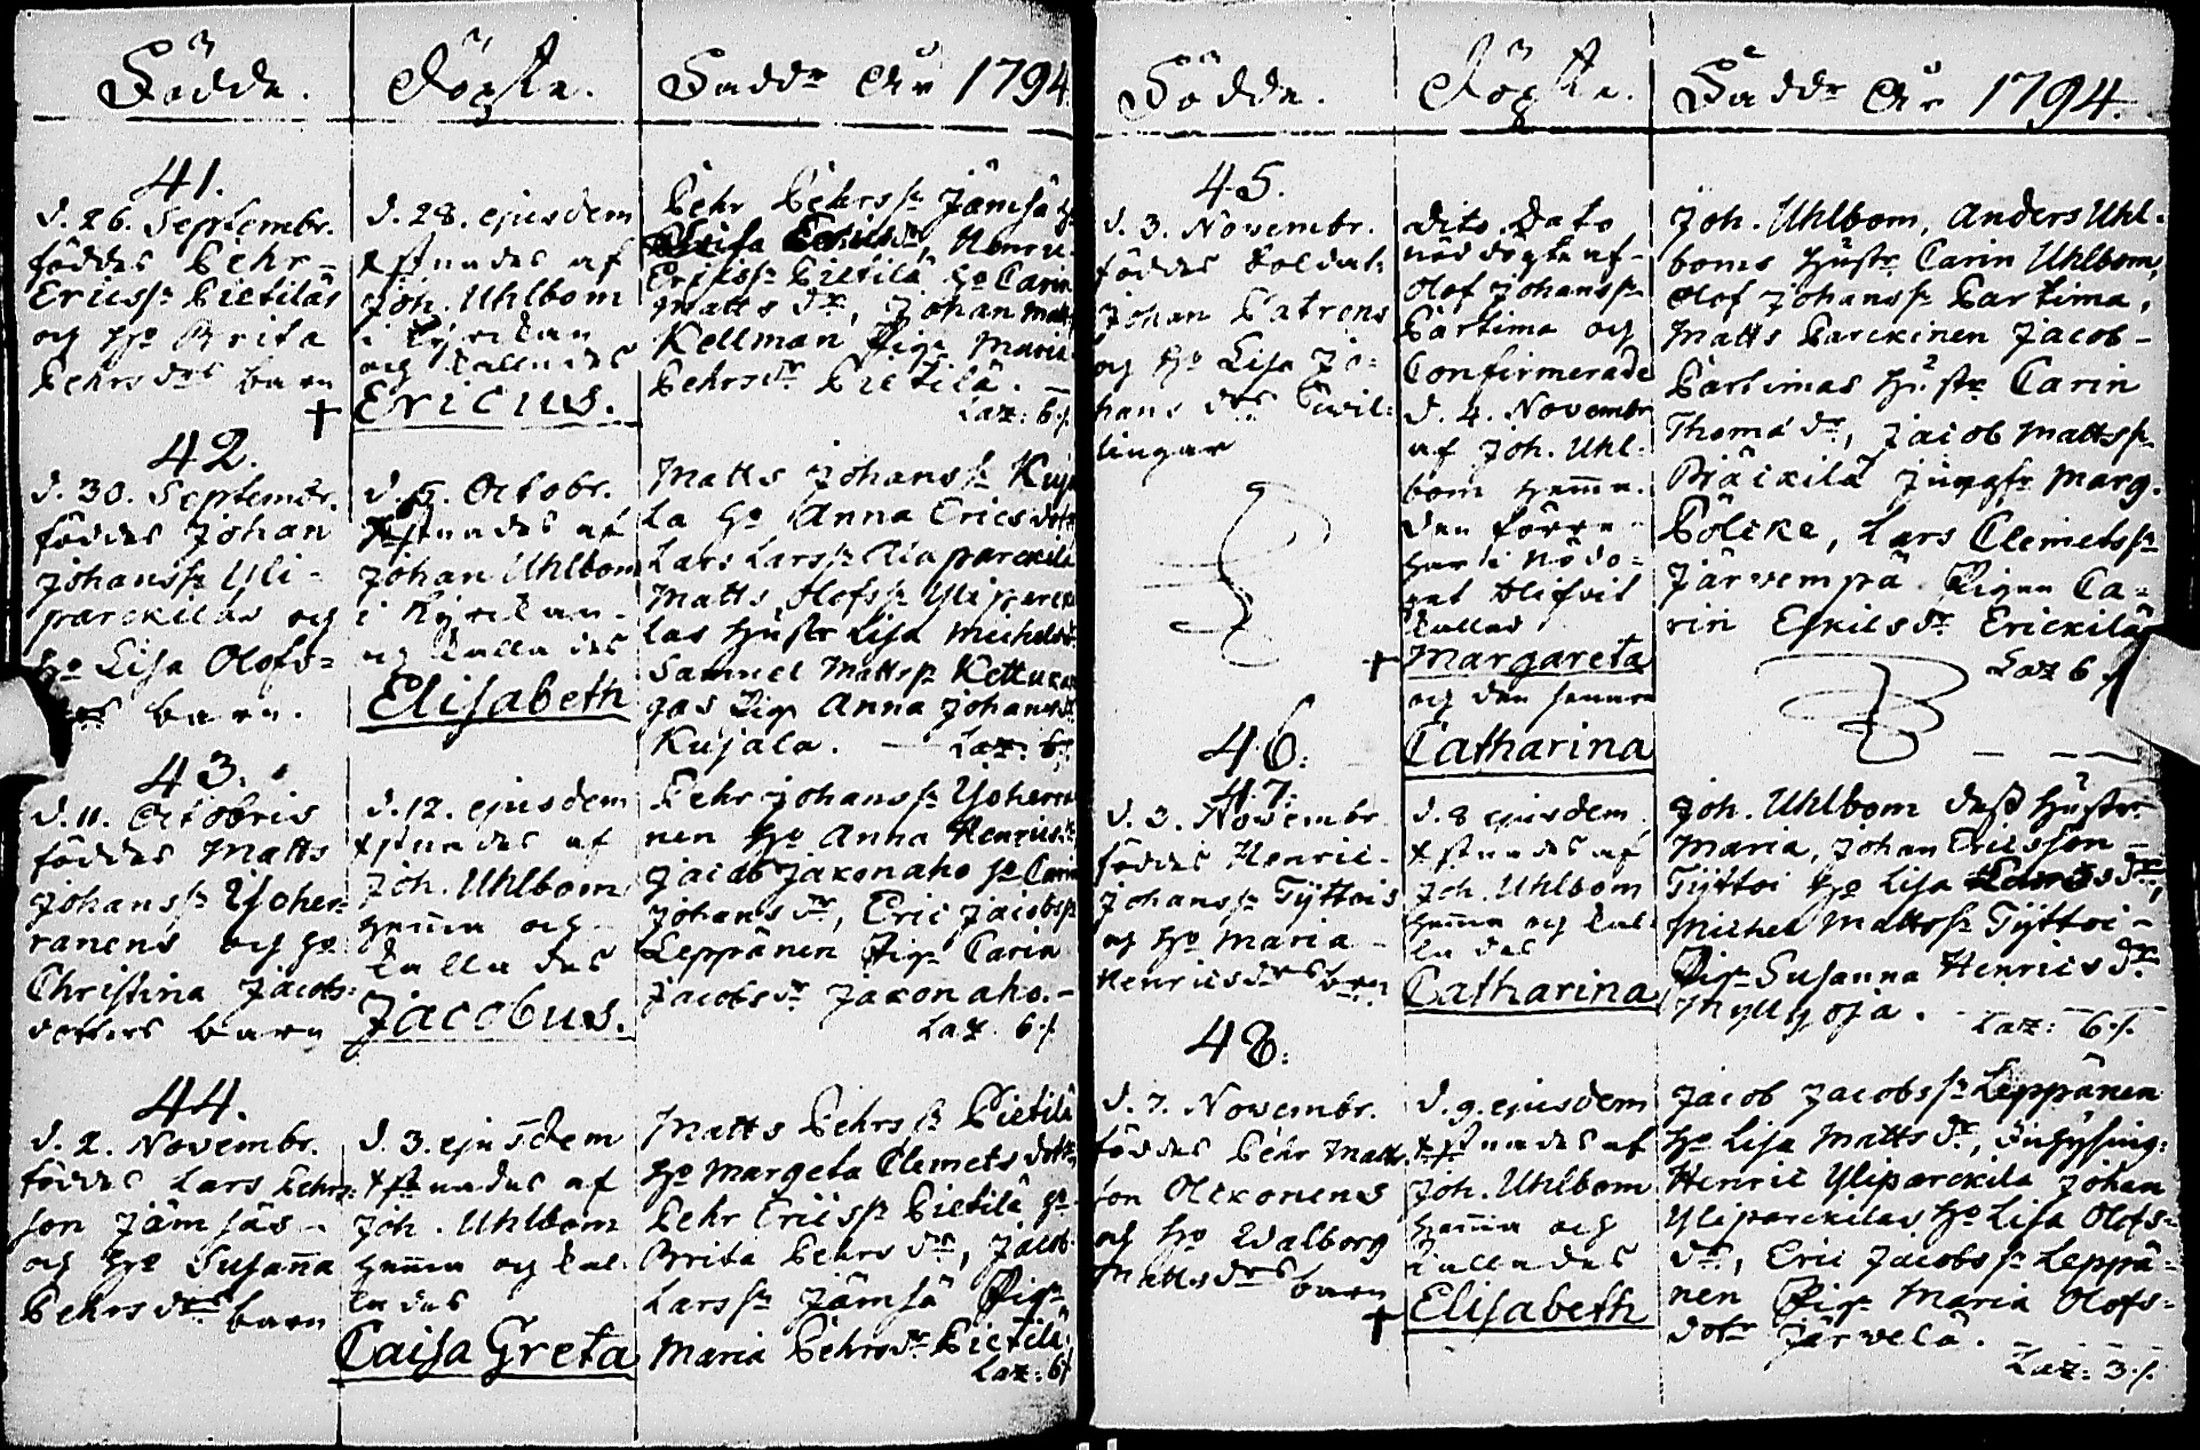 Födde.
Döpte.
Faddr År 1794.
41.
d. 26. Septembr.
föddes Pehr
Ericss: Pietiläs
och ho Brita
Pehrsdrs barn
†
d. 28. ejusdem
Xstnades af
Joh. Uhlbom
i Kyrckan
och kallades
Ericus.
Pehr Pehrss: Jämsä ho
Henric
Ericss: Pietilä ho Carin
Matts dr, Johan Matts
Kellman Pig. Maria
Pehrsdr Pietilä.
Laz: 6 /.
42.
d. 30. Septembr.
föddes Johan
Johanss: Yli-
parckilas och
ho Lisa Olofs=
drs barn.
d. 5. Octobr.
Xstnades af
Johan Uhlbom
i Kyrckan
och kallades
Elisabeth
Matts Johanss: Kuja
la ho Anna Ericsdotr
Lars Larss: Alaparckila
Matts Olofss: Yliparcki
las hustr Lisa Michelsdr
Samuel Mattss: Kettukan
gas Pig Anna Johansdr
Kujala. — Laz: 6 /.
43.
d. 11. Octobris
föddes Matts
Johanss: Ysoher-
ranens och ho
Christina Jacobs-
dotters barn
d. 12. ejusdem
Xstnades af
Joh. Uhlbom
hemma och
kallades
Jacobus.
Pehr Johanss: Ysoherra
nen ho Anna Henricsdr
Jacob Jakonaho ho Carin
Johansdr, Eric Jacobss:
Leppänen Pig. Carin
Jacobsdr Jakonaho. —
Laz. 6 /.
44.
d. 2. Novembr.
föddes Lars Pehrs-
son Jämsäs
och ho Susanna
Pehrsdrs barn
d. 3. ejusdem
Xstnades af
Joh. Uhlbom
hemma och kal-
lades
Caisa Greta
Matts Pehrss: Pietilä
ho Margeta Clemetsdottr
Pehr Ericss: Pietilä ho
Brita Pehrsdr, Jacob
Larss: Jämsä Pig.
Maria Pehrsdr Pietilä.
Laz: 6 /.
Födde.
Döpte.
Faddr År 1794.
45.
d. 3. Novembr.
föddes Soldat:
Johan Patrons
och ho Lisa Jo=
hans drs Twil=
lingar
dito dato
nöddöpte af
Olof Johanss:
Partima och
Confirmerade
d. 4. Novembr
af Joh. Uhl-
bom hemma.
den förra
har i nöddo-
pet blifvit
kallad
† Margareta
och den senare
Catharina
46:
Joh. Uhlbom, Anders Uhl-
boms hustr Carin Uhlbom,
Olof Johanss: Partima,
Matts Parckinen Jacob
Partimas hustr Carin
Thomædr, Jacob Mattss:
Präckilä Jungfr Marg.
Pölcke, Lars Clemetss:
Järvempä Pigan Ca-
rin Eskilsdr Erickilä
Laz 6 /.
47.
d. 3. Novembr.
föddes Henric
Johanss: Tyttois
och ho Maria
Henricsdrs barn
d. 8 ejusdem
Xstnades af
Joh. Uhlbom
hemma och kal-
lades
Catharina
Joh. Uhlbom dess hustr
Maria, Johan Ericsson
Tyttoi ho Lisa Larsdr,
Michel Mattss: Tyttoi
Pig. Susanna Henricsdr
Myllyoja. Laz: 6 /.
48:
d. 7. Novembr.
föddes Pehr Matts
son Olckonens
och ho Walborg
Mattsdrs barn
†
d. 9. ejusdem
Xstnades af
Joh. Uhlbom
hemma och
kallades
Elisabeth
Jacob Jacobss: Leppänen
ho Lisa Mattsdr, Inhysing:
Henric Yliparckila Johan
Yliparckilas ho Lisa Olofs=
dr, Eric Jacobss: Leppä=
nen Pig. Maria Olofs=
dotr Järvelä.
Laz: 3 /.